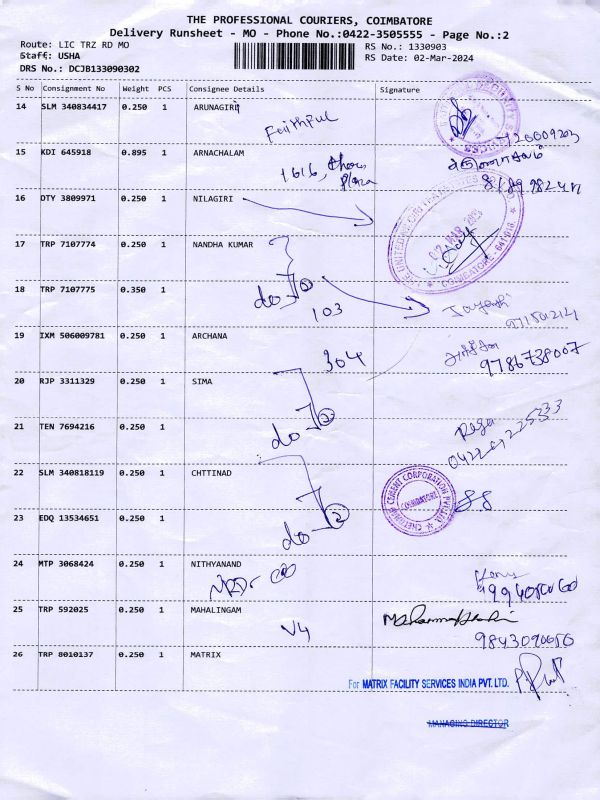 THE PROFESSIONAL COURIERS, COIMBATORE
Delivery Runsheet - MO - Phone No.:0422-3505555 - Page No.:2
Route: LIC TRZ RD MO
RS No.: 1330903
Staff: USHA
RS Date: 02-Mar-2024
DRS No.: DCJB133090302
S No Consignment No Weight PCS Consignee Details Signature
14 SLM 340834417 0.250 1 ARUNAGIRI
Faithful
15 KDI 645918 0.895 1 ARNACHALAM
1616, Plaza
16 DTY 3809971 0.250 1 NILAGIRI
17 TRP 7107774 0.250 1 NANDHA KUMAR
COIMBATORE - 641018
18 TRP 7107775 0.350 1
do
103
19 IXM 506009781 0.250 1 ARCHANA
304
9786738007
20 RJP 3311329 0.250 1 SIMA
21 TEN 7694216 0.250 1
do 2
22 SLM 340818119 0.250 1 CHTTINAD
CHETTINAD CEMENT CORPORATION
COIMBATORE
23 EDQ 13534651 0.250 1
do 2
24 MTP 3068424 0.250 1 NITHYANAND
25 TRP 592025 0.250 1 MAHALINGAM
V4
9843090050
26 TRP 8010137 0.250 1 MATRIX
For MATRIX FACILITY SERVICES INDIA PVT. LTD.
MANAGING DIRECTOR